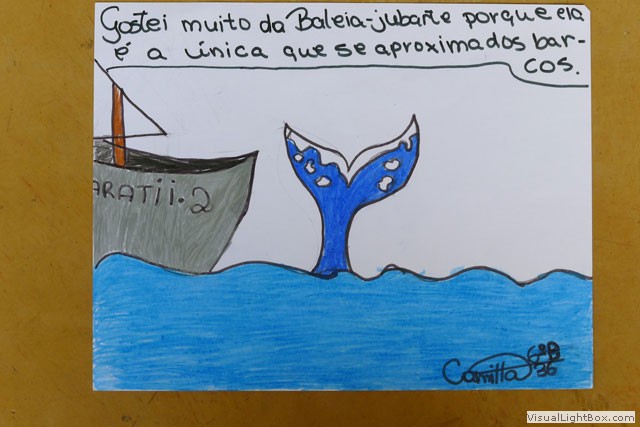 Gostei muito da Baleia-jubarte porque ela
é a única que se aproxima dos bar-
cos.
ARATii-2
Camilla 6ºB
36
VisualLightBox.com